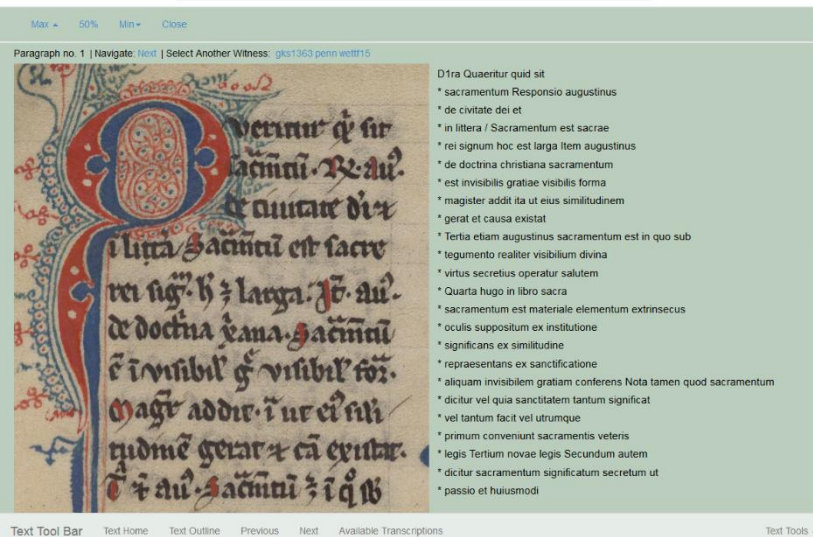 Max 50% Min Close
Paragraph no. 1 | Navigate: Next | Select Another Witness: gks1363 penn wettf15
Queritur qͥ sit
sacm̄tū. R̄. au².
de ciuitate di ⁊
ī litt̄a / Sacm̄tū est sacre
rei sigͫ. h̄ ⁊ larga. It̄. au².
de doctͥna xp̄ana. Sacm̄tū
ē īvisibil' gͬ̄ visibil' for̄.
Magr̄ addit. ī ut ei² simi
tudinē gerat ⁊ cā existat.
T̄ ⁊ au². Sacm̄tū ⁊ ī q̊ sb
D1ra Quaeritur quid sit
* sacramentum Responsio augustinus
* de civitate dei et
* in littera / Sacramentum est sacrae
* rei signum hoc est larga Item augustinus
* de doctrina christiana sacramentum
* est invisibilis gratiae visibilis forma
* magister addit ita ut eius similitudinem
* gerat et causa existat
* Tertia etiam augustinus sacramentum est in quo sub
* tegumento realiter visibilium divina
* virtus secretius operatur salutem
* Quarta hugo in libro sacra
* sacramentum est materiale elementum extrinsecus
* oculis suppositum ex institutione
* significans ex similitudine
* repraesentans ex sanctificatione
* aliquam invisibilem gratiam conferens Nota tamen quod sacramentum
* dicitur vel quia sanctitatem tantum significat
* vel tantum facit vel utrumque
* primum conveniunt sacramentis veteris
* legis Tertium novae legis Secundum autem
* dicitur sacramentum significatum secretum ut
* passio et huiusmodi
Text Tool Bar Text Home Text Outline Previous Next Available Transcriptions Text Tools